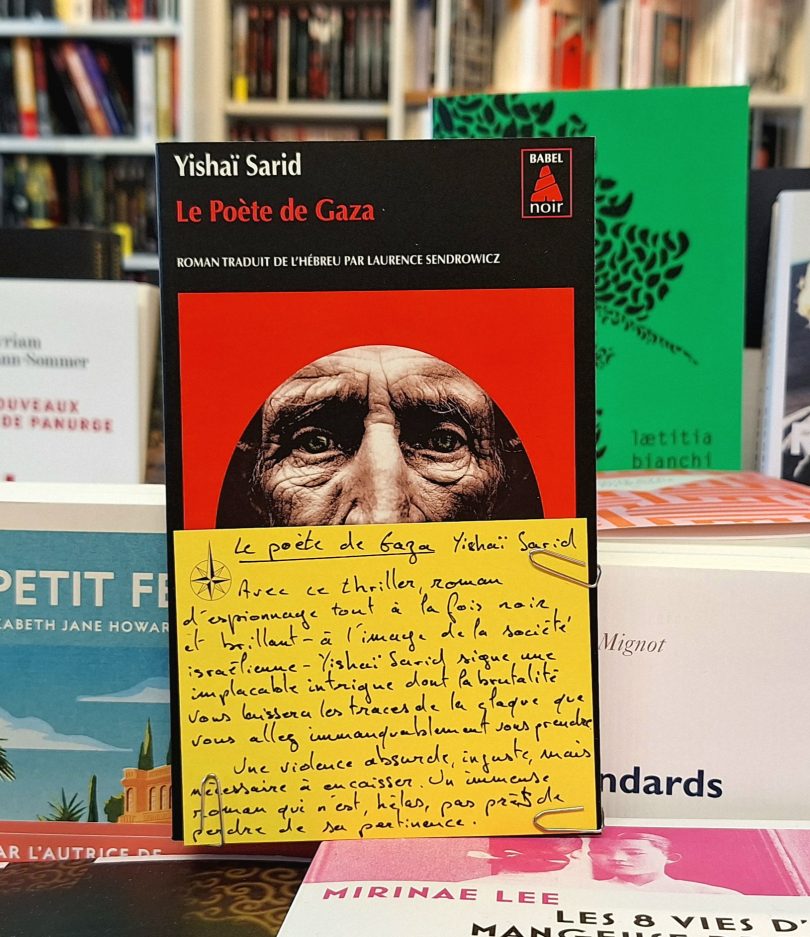 Yishaï Sarid
BABEL
noir
Le Poète de Gaza
ROMAN TRADUIT DE L'HÉBREU PAR LAURENCE SENDROWICZ
Le poète de Gaza Yishaï Sarid
Avec ce thriller, roman
d'espionnage tout à la fois noir
et brillant - à l'image de la société
israëlienne - Yishaï Sarid signe une
implacable intrigue dont la brutalité
vous laissera les traces de la claque que
vous allez immanquablement vous prendre
Une violence absurde, injuste, mais
nécessaire à encaisser. Un immense
roman qui n'est, hélas, pas prêt de
perdre de sa pertinence.
lætitia
bianchi
yriam
nn-Sommer
OUVEAUX
DE PANURGE
PETIT FE
ABETH JANE HOWAR
AR L'AUTRICE DE
Mignot
ndards
MIRINAE LEE
LES 8 VIES D'
MANGEUSE D